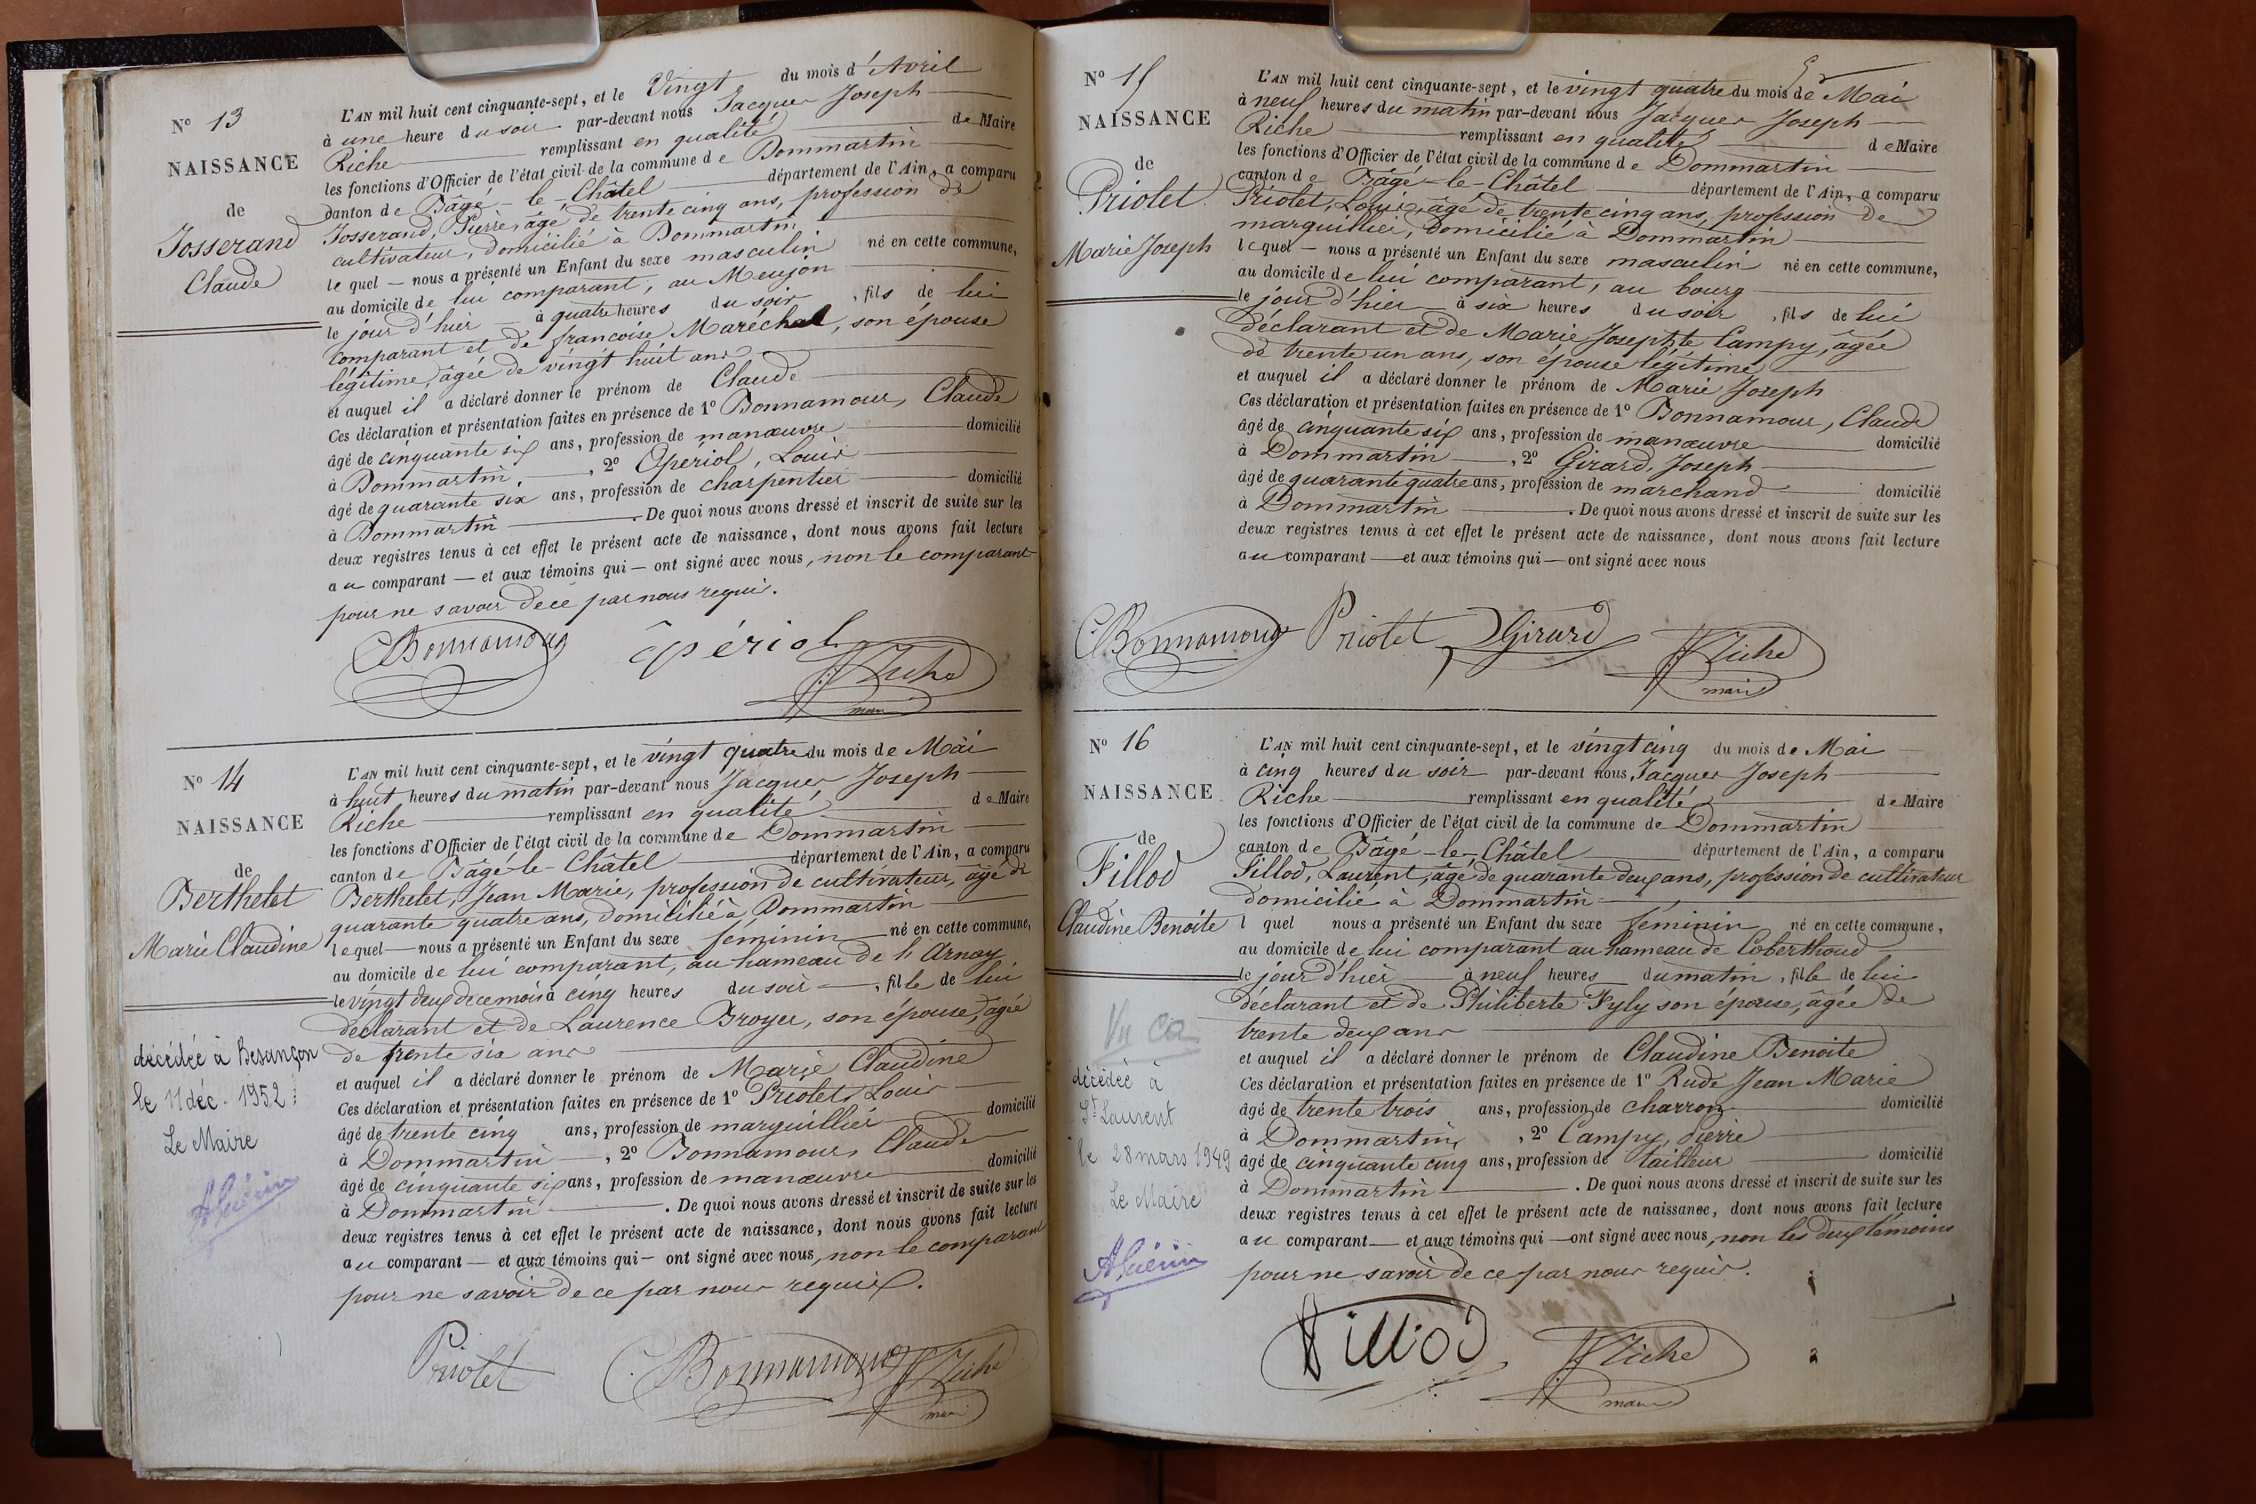 N° 13
NAISSANCE
de
Josserand
Claude
L'AN mil huit cent cinquante-sept, et le Vingt du mois d'Avril
à une heure du soir par-devant nous Jacques Joseph
Riche remplissant en qualité de Maire
les fonctions d'Officier de l'état civil de la commune de Dommartin
canton de Bâgé-le-Châtel département de l'Ain, a comparu
Josserand, Pierre, âgé de trente cinq ans, profession de
cultivateur, domicilié à Dommartin
lequel nous a présenté un Enfant du sexe masculin né en cette commune,
au domicile de lui comparant, au Meujon
le jour d'hier à quatre heures du soir, fils de lui
comparant et de françoise Maréchal, son épouse
légitime, âgée de vingt huit ans
et auquel il a déclaré donner le prénom de Claude
Ces déclaration et présentation faites en présence de 1° Bonnamour, Claude
âgé de cinquante six ans, profession de manœuvre domicilié
à Dommartin, 2° Operiol, Louis
âgé de quarante six ans, profession de charpentier domicilié
à Dommartin. De quoi nous avons dressé et inscrit de suite sur les
deux registres tenus à cet effet le présent acte de naissance, dont nous avons fait lecture
au comparant et aux témoins qui ont signé avec nous, non le comparant
pour ne savoir de ce par nous requis.
C. Bonnamour Riche
maire
N° 14
NAISSANCE
de
Berthelet
Marie Claudine
décédée à Besançon
le 11 déc. 1952
Le Maire
AGuérin
L'AN mil huit cent cinquante-sept, et le vingt quatre du mois de Mai
à huit heures du matin par-devant nous Jacques Joseph
Riche remplissant en qualité de Maire
les fonctions d'Officier de l'état civil de la commune de Dommartin
canton de Bâgé-le-Châtel département de l'Ain, a comparu
Berthelet, Jean Marie, profession de cultivateur, âgé de
quarante quatre ans, domicilié à Dommartin
lequel nous a présenté un Enfant du sexe féminin né en cette commune,
au domicile de lui comparant, au hameau de Arnay
le vingt deux de ce mois à cinq heures du soir, fille de lui
déclarant et de Laurence Broyer, son épouse, âgée
de trente six ans
et auquel il a déclaré donner le prénom de Marie Claudine
Ces déclaration et présentation faites en présence de 1° Priolet, Louis
âgé de trente cinq ans, profession de marguillier domicilié
à Dommartin, 2° Bonnamour, Claude
âgé de cinquante six ans, profession de manœuvre domicilié
à Dommartin. De quoi nous avons dressé et inscrit de suite sur les
deux registres tenus à cet effet le présent acte de naissance, dont nous avons fait lecture
au comparant et aux témoins qui ont signé avec nous, non le comparant
pour ne savoir de ce par nous requis.
Priolet C. Bonnamour Riche
maire
N° 15
NAISSANCE
de
Priolet
Marie Joseph
L'AN mil huit cent cinquante-sept, et le vingt quatre du mois de Mai
à neuf heures du matin par-devant nous Jacques Joseph
Riche remplissant en qualité de Maire
les fonctions d'Officier de l'état civil de la commune de Dommartin
canton de Bâgé-le-Châtel département de l'Ain, a comparu
Priolet, Louis, âgé de trente cinq ans, profession de
marguillier, domicilié à Dommartin
lequel nous a présenté un Enfant du sexe masculin né en cette commune,
au domicile de lui comparant, au bourg
le jour d'hier à six heures du soir, fils de lui
déclarant et de Marie Josephte Campy, âgée
de trente un ans, son épouse légitime
et auquel il a déclaré donner le prénom de Marie Joseph
Ces déclaration et présentation faites en présence de 1° Bonnamour, Claude
âgé de cinquante six ans, profession de manœuvre domicilié
à Dommartin, 2° Girard, Joseph
âgé de quarante quatre ans, profession de marchand domicilié
à Dommartin. De quoi nous avons dressé et inscrit de suite sur les
deux registres tenus à cet effet le présent acte de naissance, dont nous avons fait lecture
au comparant et aux témoins qui ont signé avec nous
C. Bonnamour Priolet Girard Riche
maire
N° 16
NAISSANCE
de
Fillod
Claudine Benoite
Vu
décédée à
St Laurent
le 28 mars 1949
Le Maire
AGuérin
L'AN mil huit cent cinquante-sept, et le vingt cinq du mois de Mai
à cinq heures du soir par-devant nous Jacques Joseph
Riche remplissant en qualité de Maire
les fonctions d'Officier de l'état civil de la commune de Dommartin
canton de Bâgé-le-Châtel département de l'Ain, a comparu
Fillod, Laurent, âgé de quarante deux ans, profession de cultivateur
domicilié à Dommartin
l quel nous a présenté un Enfant du sexe féminin né en cette commune,
au domicile de lui comparant au hameau de Coberthoud
le jour d'hier à neuf heures du matin, fille de lui
déclarant et de Philiberte Fyly son épouse, âgée de
trente deux ans
et auquel il a déclaré donner le prénom de Claudine Benoite
Ces déclaration et présentation faites en présence de 1° Rude Jean Marie
âgé de trente trois ans, profession de charron domicilié
à Dommartin, 2° Campy, Pierre
âgé de cinquante cinq ans, profession de tailleur domicilié
à Dommartin. De quoi nous avons dressé et inscrit de suite sur les
deux registres tenus à cet effet le présent acte de naissance, dont nous avons fait lecture
au comparant et aux témoins qui ont signé avec nous, non les deux témoins
pour ne savoir de ce par nous requis.
Filliod Riche
maire